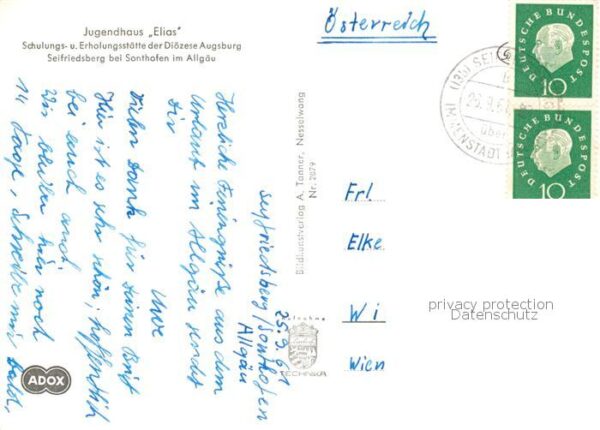 Jugendhaus „Elias"
Schulungs- u. Erholungsstätte der Diözese Augsburg
Seifriedsberg bei Sonthofen im Allgäu
Seifriedsberg/Sonthofen
Allgäu
25.9.61
Herzliche Feriengrüße aus dem
Urlaub im Allgäu sendet
Dir
Uwe
Vielen Dank für Deinen Brief
Hier ist es sehr schön, hoffentlich
bei euch auch!
Wir bleiben hier noch
14 Tage, Schreibe mir bald,
ADOX
Bildkunstverlag A. Tanner, Nesselwang
Nr. 2879
Aufnahme
TECHNIKA
Österreich
DEUTSCHE BUNDESPOST
10
DEUTSCHE BUNDESPOST
10
über
IMMENSTADT
Frl.
Elke
Wi
Wien
privacy protection
Datenschutz